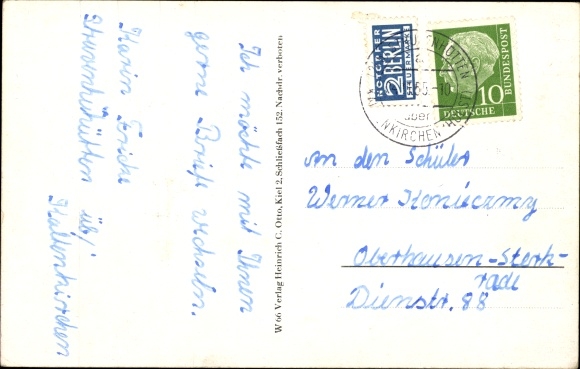 Ich möchte mit Ihnen
gerne Briefe wechseln.
Karin Fricke
üb/
Kaltenkirchen
W 66 Verlag Heinrich C. Otto, Kiel 2, Schließfach 152. Nachdr. verboten
NOTOPFER
2 BERLIN
STEUERMARKE
DEUTSCHE
BUNDESPOST
10
über
An den Schüler
Werner Konieczny
Oberhausen-Sterk-
rade
Dienstr. 88